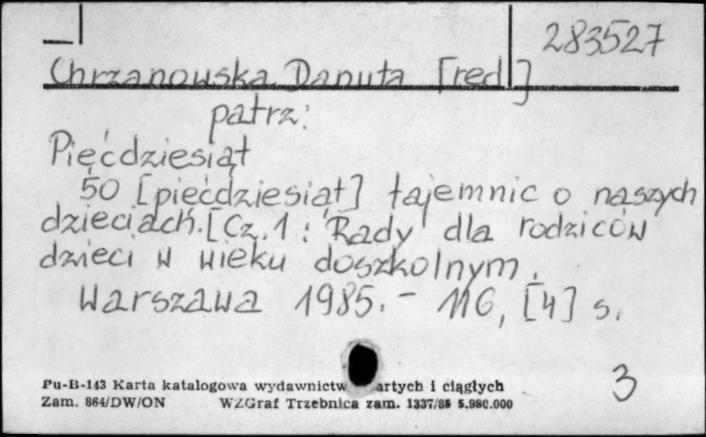 283527
Chrzanowska Danuta [red]
patrz:
Pięćdziesiąt
50 [pięćdziesiąt] tajemnic o naszych
dzieciach. [Cz. 1 : Rady dla rodziców
dzieci w wieku doszkolnym.
Warszawa 1985. - 116, [4] s.
Pu-B-143 Karta katalogowa wydawnictw artych i ciągłych
Zam. 864/DW/ON WZGraf Trzebnica zam. 1337/85 5.980.000
3